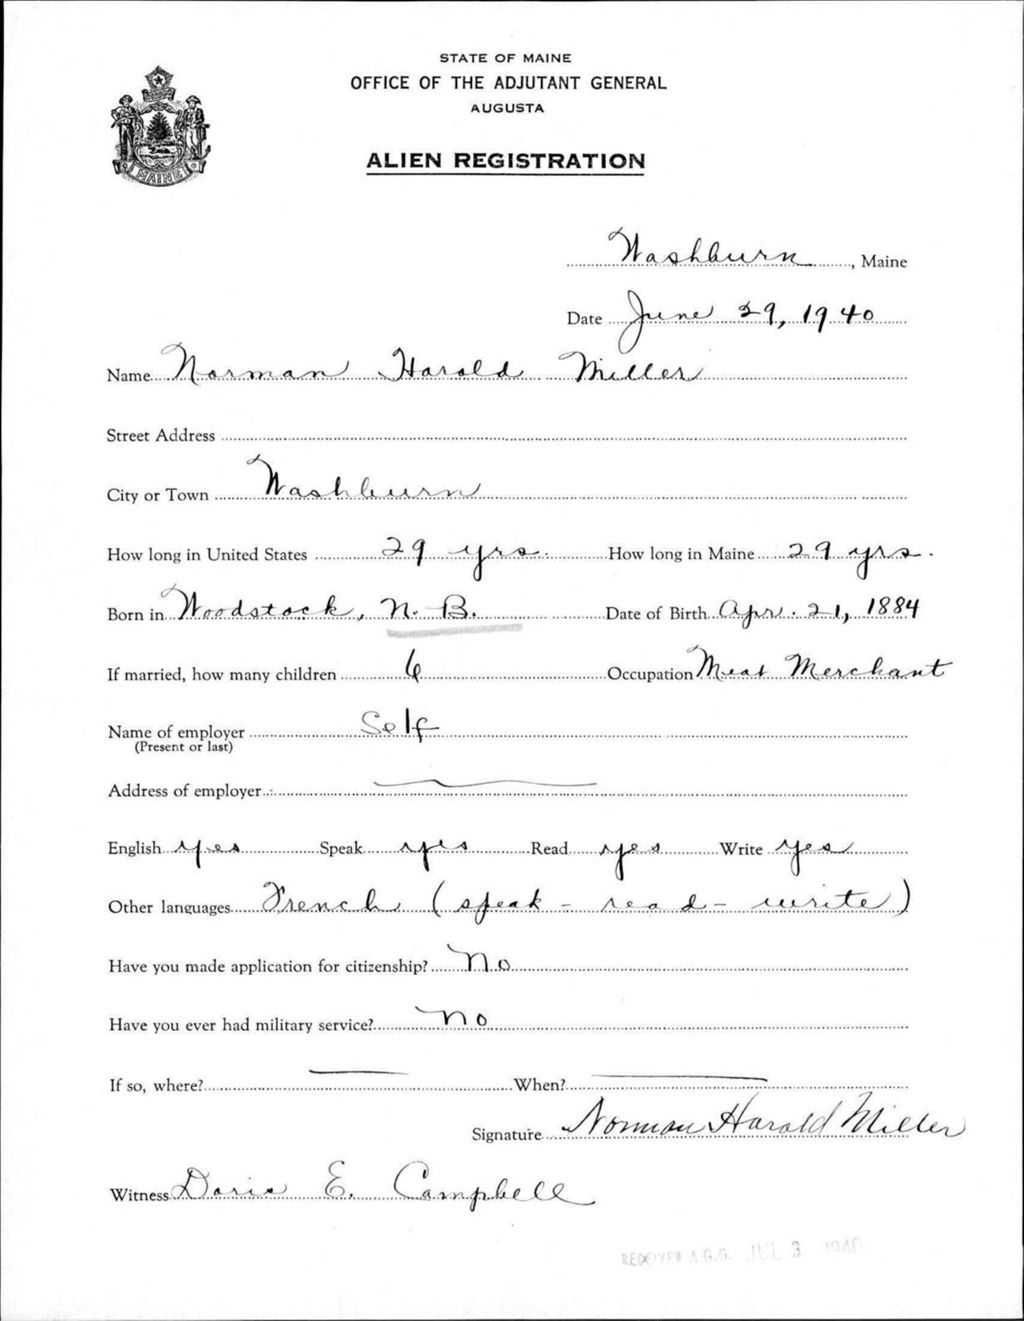 STATE OF MAINE
OFFICE OF THE ADJUTANT GENERAL
AUGUSTA
ALIEN REGISTRATION
MAINE
Washburn, Maine
Date June 29, 1940
Name Norman Harold Miller
Street Address
City or Town Washburn
How long in United States 29 yrs. How long in Maine 29 yrs.
Born in Woodstock, N. B. Date of Birth Apr. 21, 1884
If married, how many children 6 Occupation Meat Merchant
Name of employer Self
(Present or last)
Address of employer
English yes Speak yes Read yes Write yes
Other languages French (speak - read - write)
Have you made application for citizenship? No
Have you ever had military service? No
If so, where? When?
Signature Norman Harold Miller
Witness Doris E. Campbell
RECEIVED A.G.O. JUL 3 1940